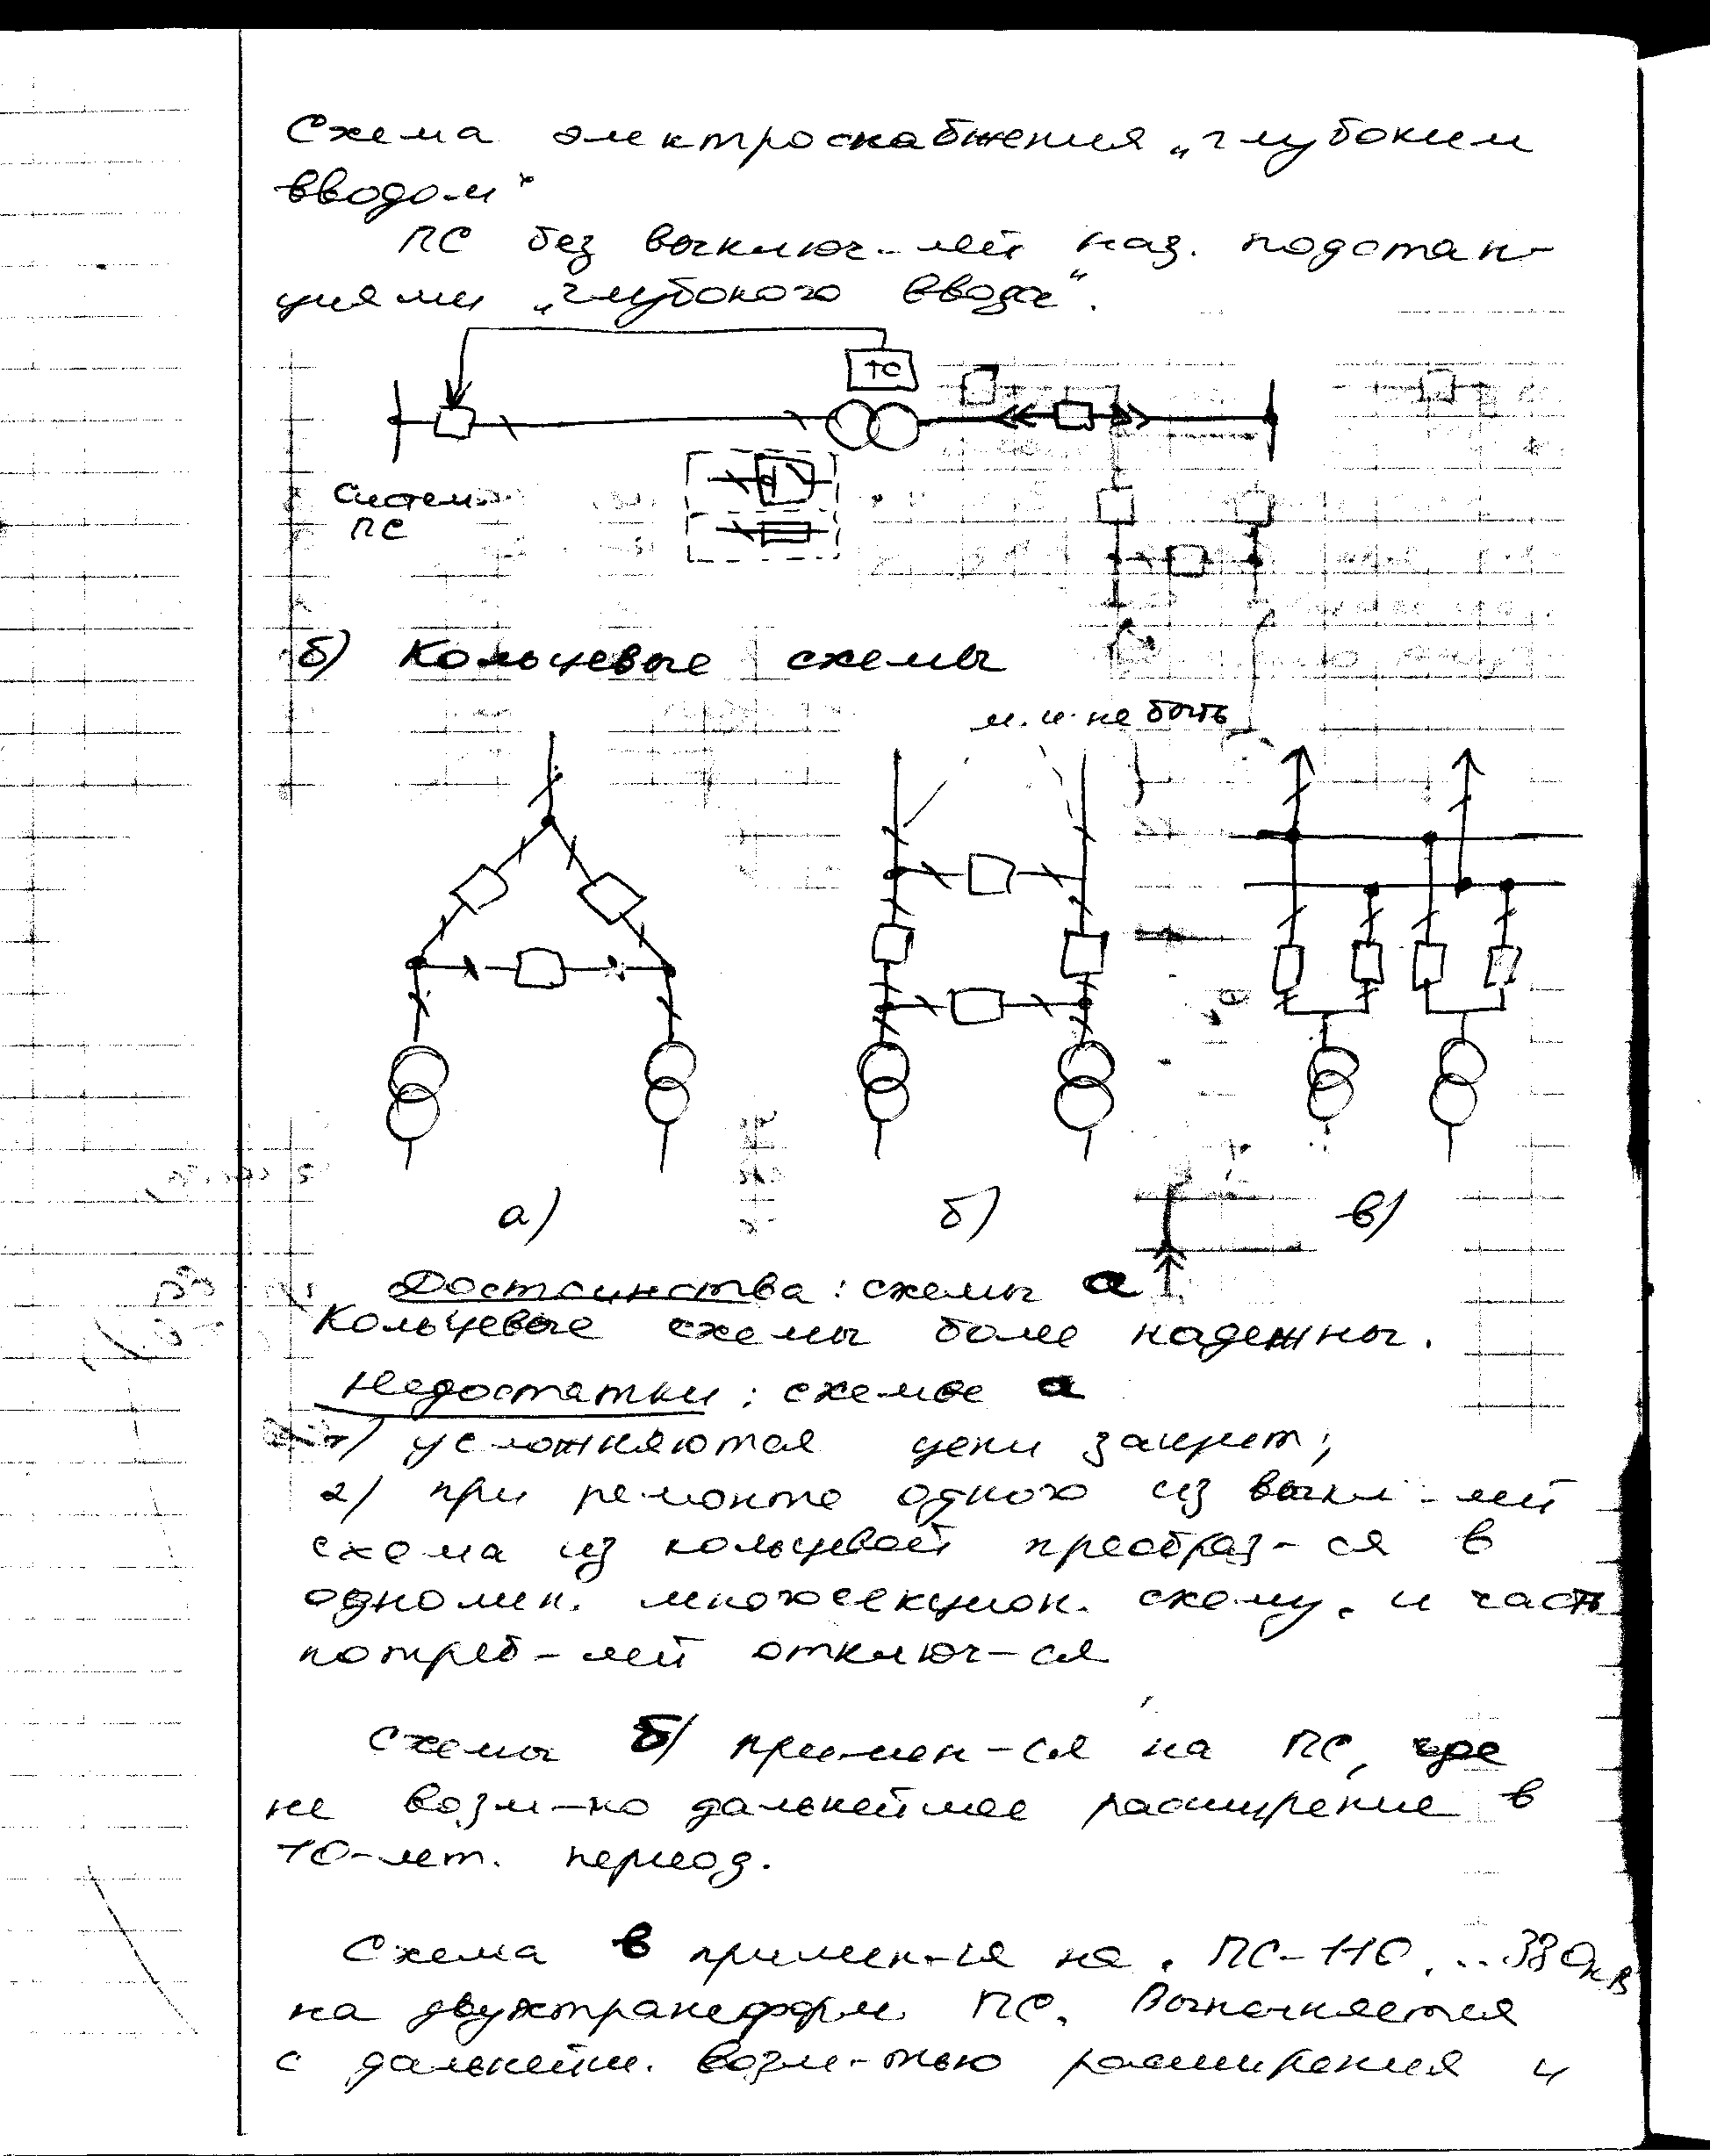 Схема электроснабжения „глубоким
вводом"
ПС без выключ-лей наз. подстан-
циями „глубокого ввода".
ТС
Система
ПС
б) Кольцевые схемы
м.и. не быть
а)
б)
в)
Достоинства: схемы а
Кольцевые схемы более надежны.
Недостатки: схемы а
1) усложняются цепи защит;
2) при ремонте одного из выкл-лей
схема из кольцевой преобраз-ся в
одномин. многосекцион. схему. и часть
потреб-лей отключ-ся
Схемы б) примен-ся на ПС, где
не возм-но дальнейшее расширение в
10-лет. период.
Схема в примен-ся на ПС-110...330кВ
на двухтрансформ. ПС. Выполняется
с дальнейш. возм-тью расширения и